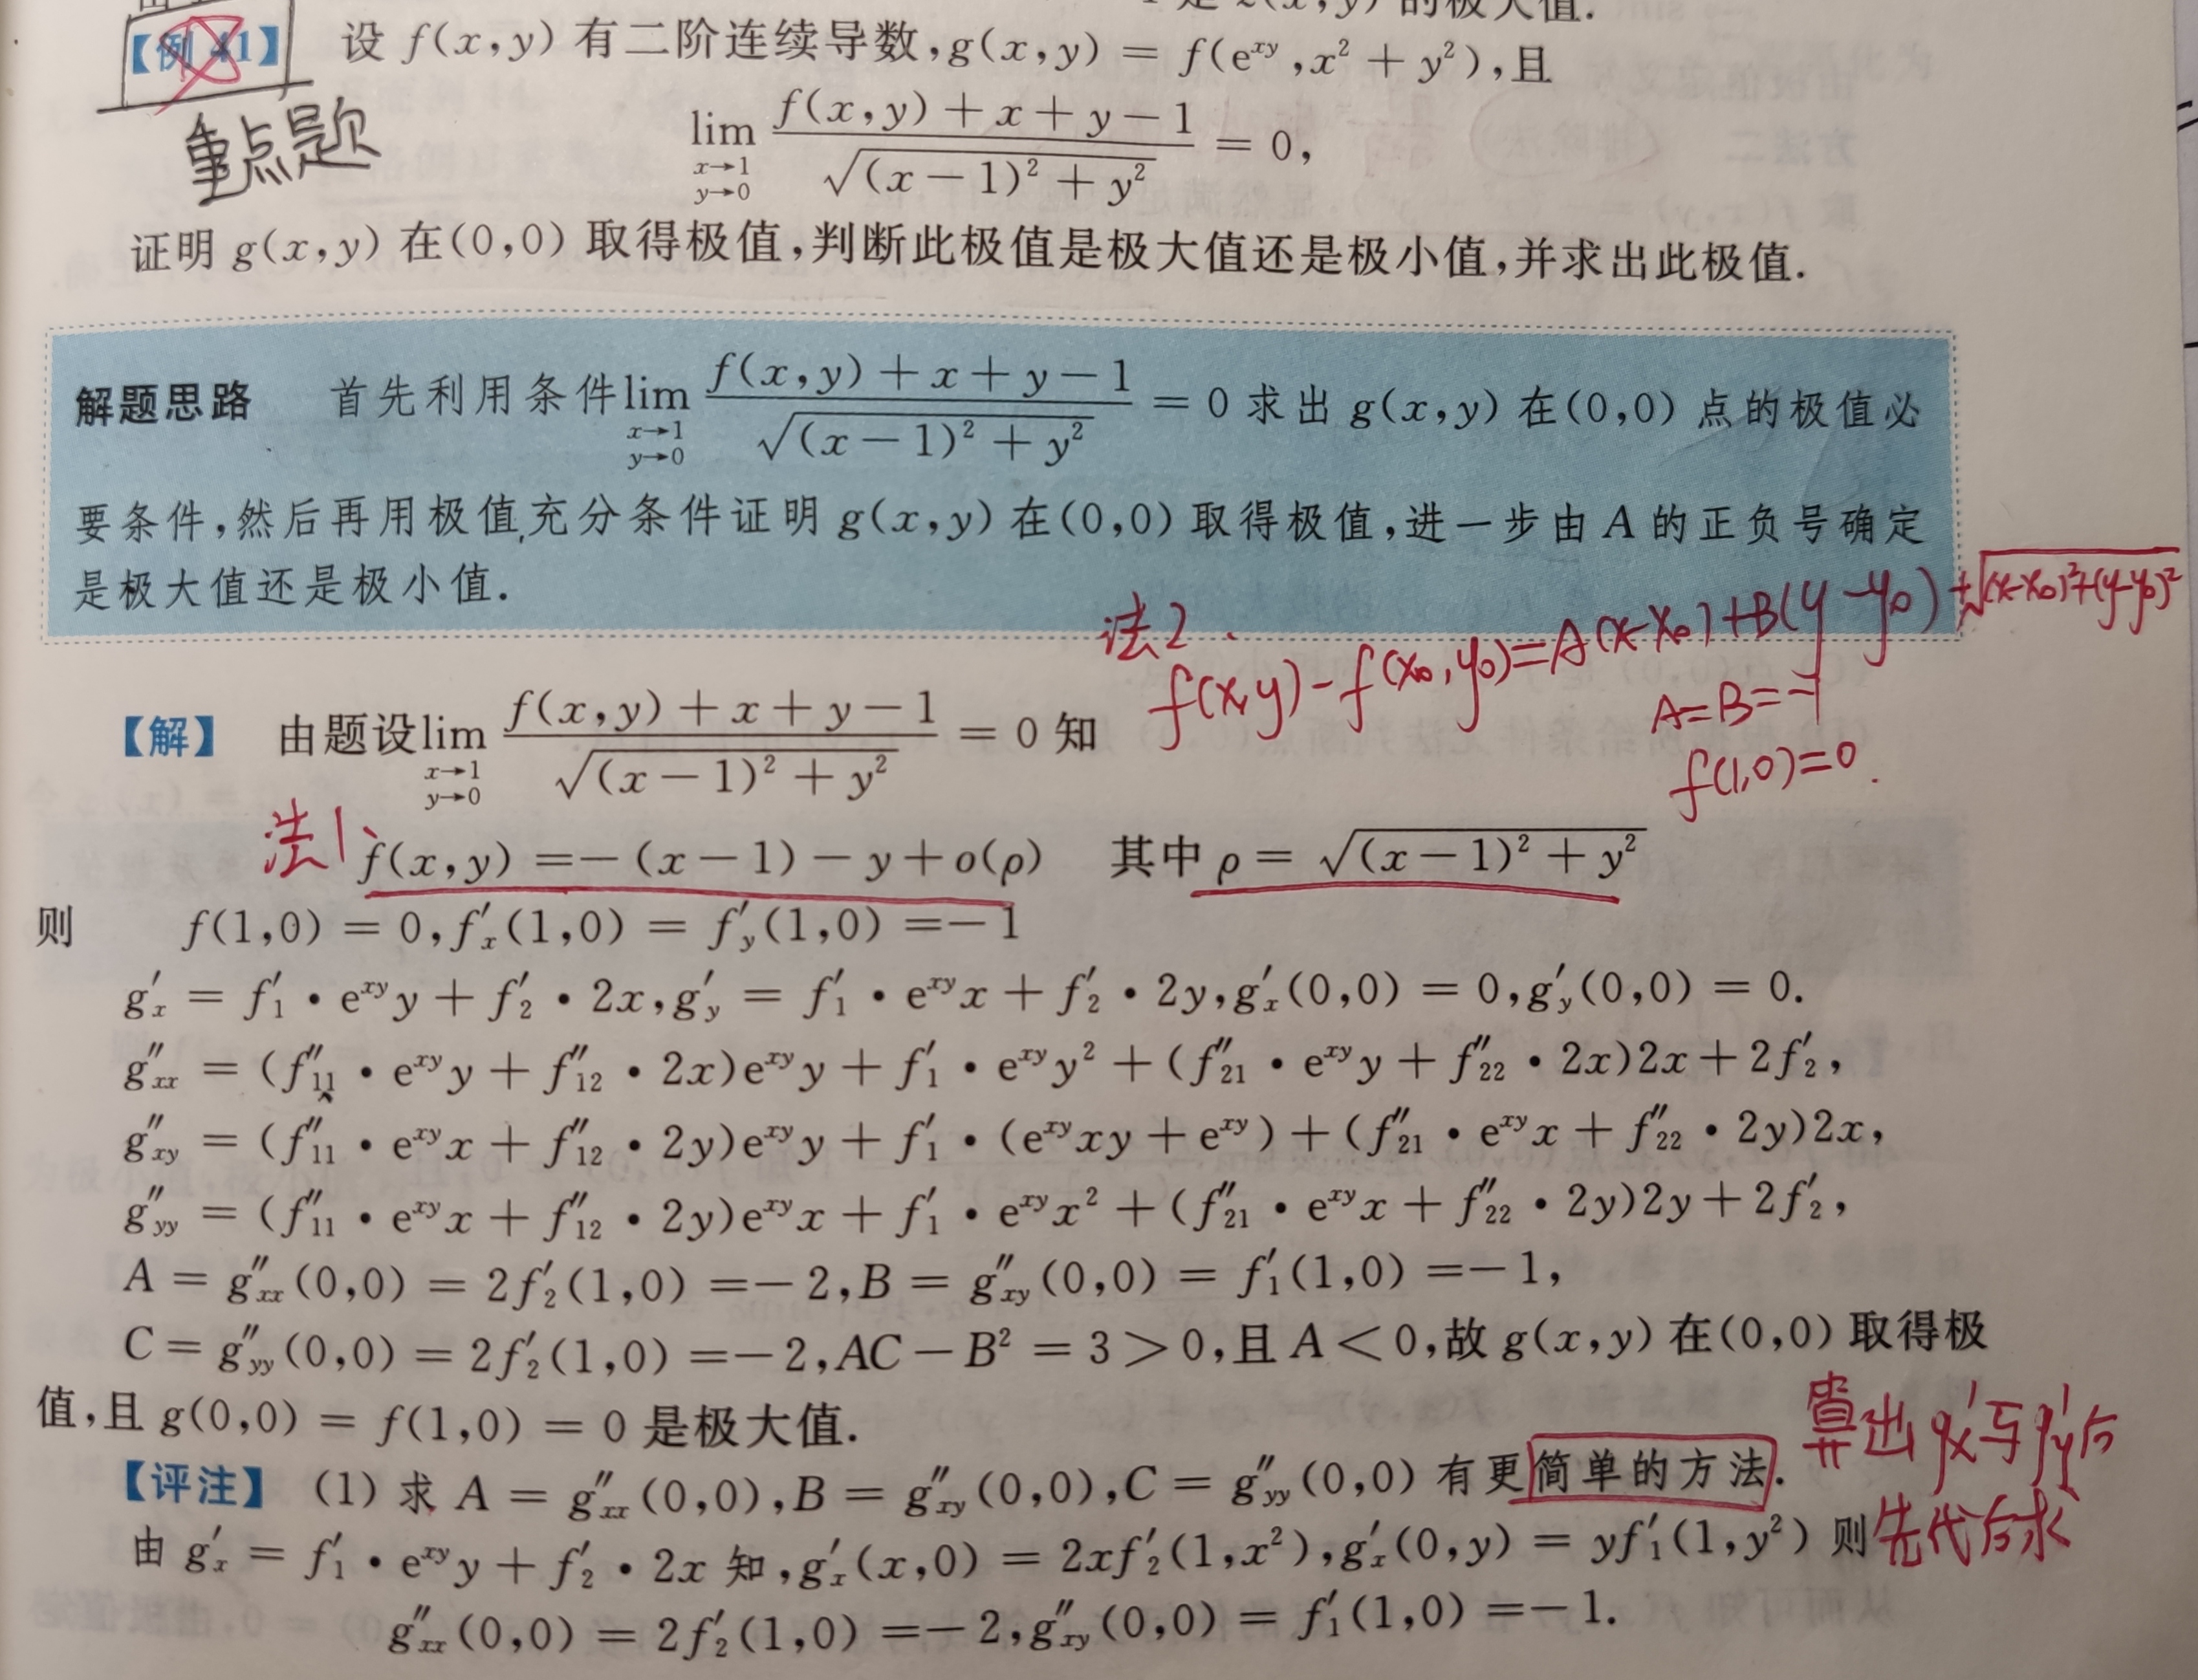 是 z(x,y) 的极大值.
【例 41】 设 f(x,y) 有二阶连续导数,g(x,y) = f(e^{xy},x² + y²),且
重点题
lim_{x→1, y→0} (f(x,y) + x + y − 1)/√((x − 1)² + y²) = 0,
证明 g(x,y) 在(0,0) 取得极值,判断此极值是极大值还是极小值,并求出此极值.
解题思路 首先利用条件 lim_{x→1, y→0} (f(x,y) + x + y − 1)/√((x − 1)² + y²) = 0 求出 g(x,y) 在(0,0) 点的极值必
要条件,然后再用极值充分条件证明 g(x,y) 在(0,0) 取得极值,进一步由 A 的正负号确定
是极大值还是极小值.
法2.
f(x,y)-f(x₀,y₀)=A(x-x₀)+B(y-y₀)+√((x-x₀)²+(y-y₀)²)
A=B=-1
f(1,0)=0.
【解】 由题设 lim_{x→1, y→0} (f(x,y) + x + y − 1)/√((x − 1)² + y²) = 0 知
法1、 f(x,y) =− (x − 1) − y + o(ρ) 其中 ρ = √((x − 1)² + y²)
则 f(1,0) = 0,f′_x(1,0) = f′_y(1,0) =− 1
g′_x = f′_1 · e^{xy}y + f′_2 · 2x,g′_y = f′_1 · e^{xy}x + f′_2 · 2y,g′_x(0,0) = 0,g′_y(0,0) = 0.
g″_{xx} = (f″_{11} · e^{xy}y + f″_{12} · 2x)e^{xy}y + f′_1 · e^{xy}y² + (f″_{21} · e^{xy}y + f″_{22} · 2x)2x + 2f′_2,
g″_{xy} = (f″_{11} · e^{xy}x + f″_{12} · 2y)e^{xy}y + f′_1 · (e^{xy}xy + e^{xy}) + (f″_{21} · e^{xy}x + f″_{22} · 2y)2x,
g″_{yy} = (f″_{11} · e^{xy}x + f″_{12} · 2y)e^{xy}x + f′_1 · e^{xy}x² + (f″_{21} · e^{xy}x + f″_{22} · 2y)2y + 2f′_2,
A = g″_{xx}(0,0) = 2f′_2(1,0) =− 2,B = g″_{xy}(0,0) = f′_1(1,0) =− 1,
C = g″_{yy}(0,0) = 2f′_2(1,0) =− 2,AC − B² = 3 > 0,且 A < 0,故 g(x,y) 在(0,0) 取得极
值,且 g(0,0) = f(1,0) = 0 是极大值.
算出 g′x与g′y后
【评注】 (1) 求 A = g″_{xx}(0,0),B = g″_{xy}(0,0),C = g″_{yy}(0,0) 有更简单的方法.
先代后求
由 g′_x = f′_1 · e^{xy}y + f′_2 · 2x 知,g′_x(x,0) = 2xf′_2(1,x²),g′_x(0,y) = yf′_1(1,y²) 则
g″_{xx}(0,0) = 2f′_2(1,0) =− 2,g″_{xy}(0,0) = f′_1(1,0) =− 1.